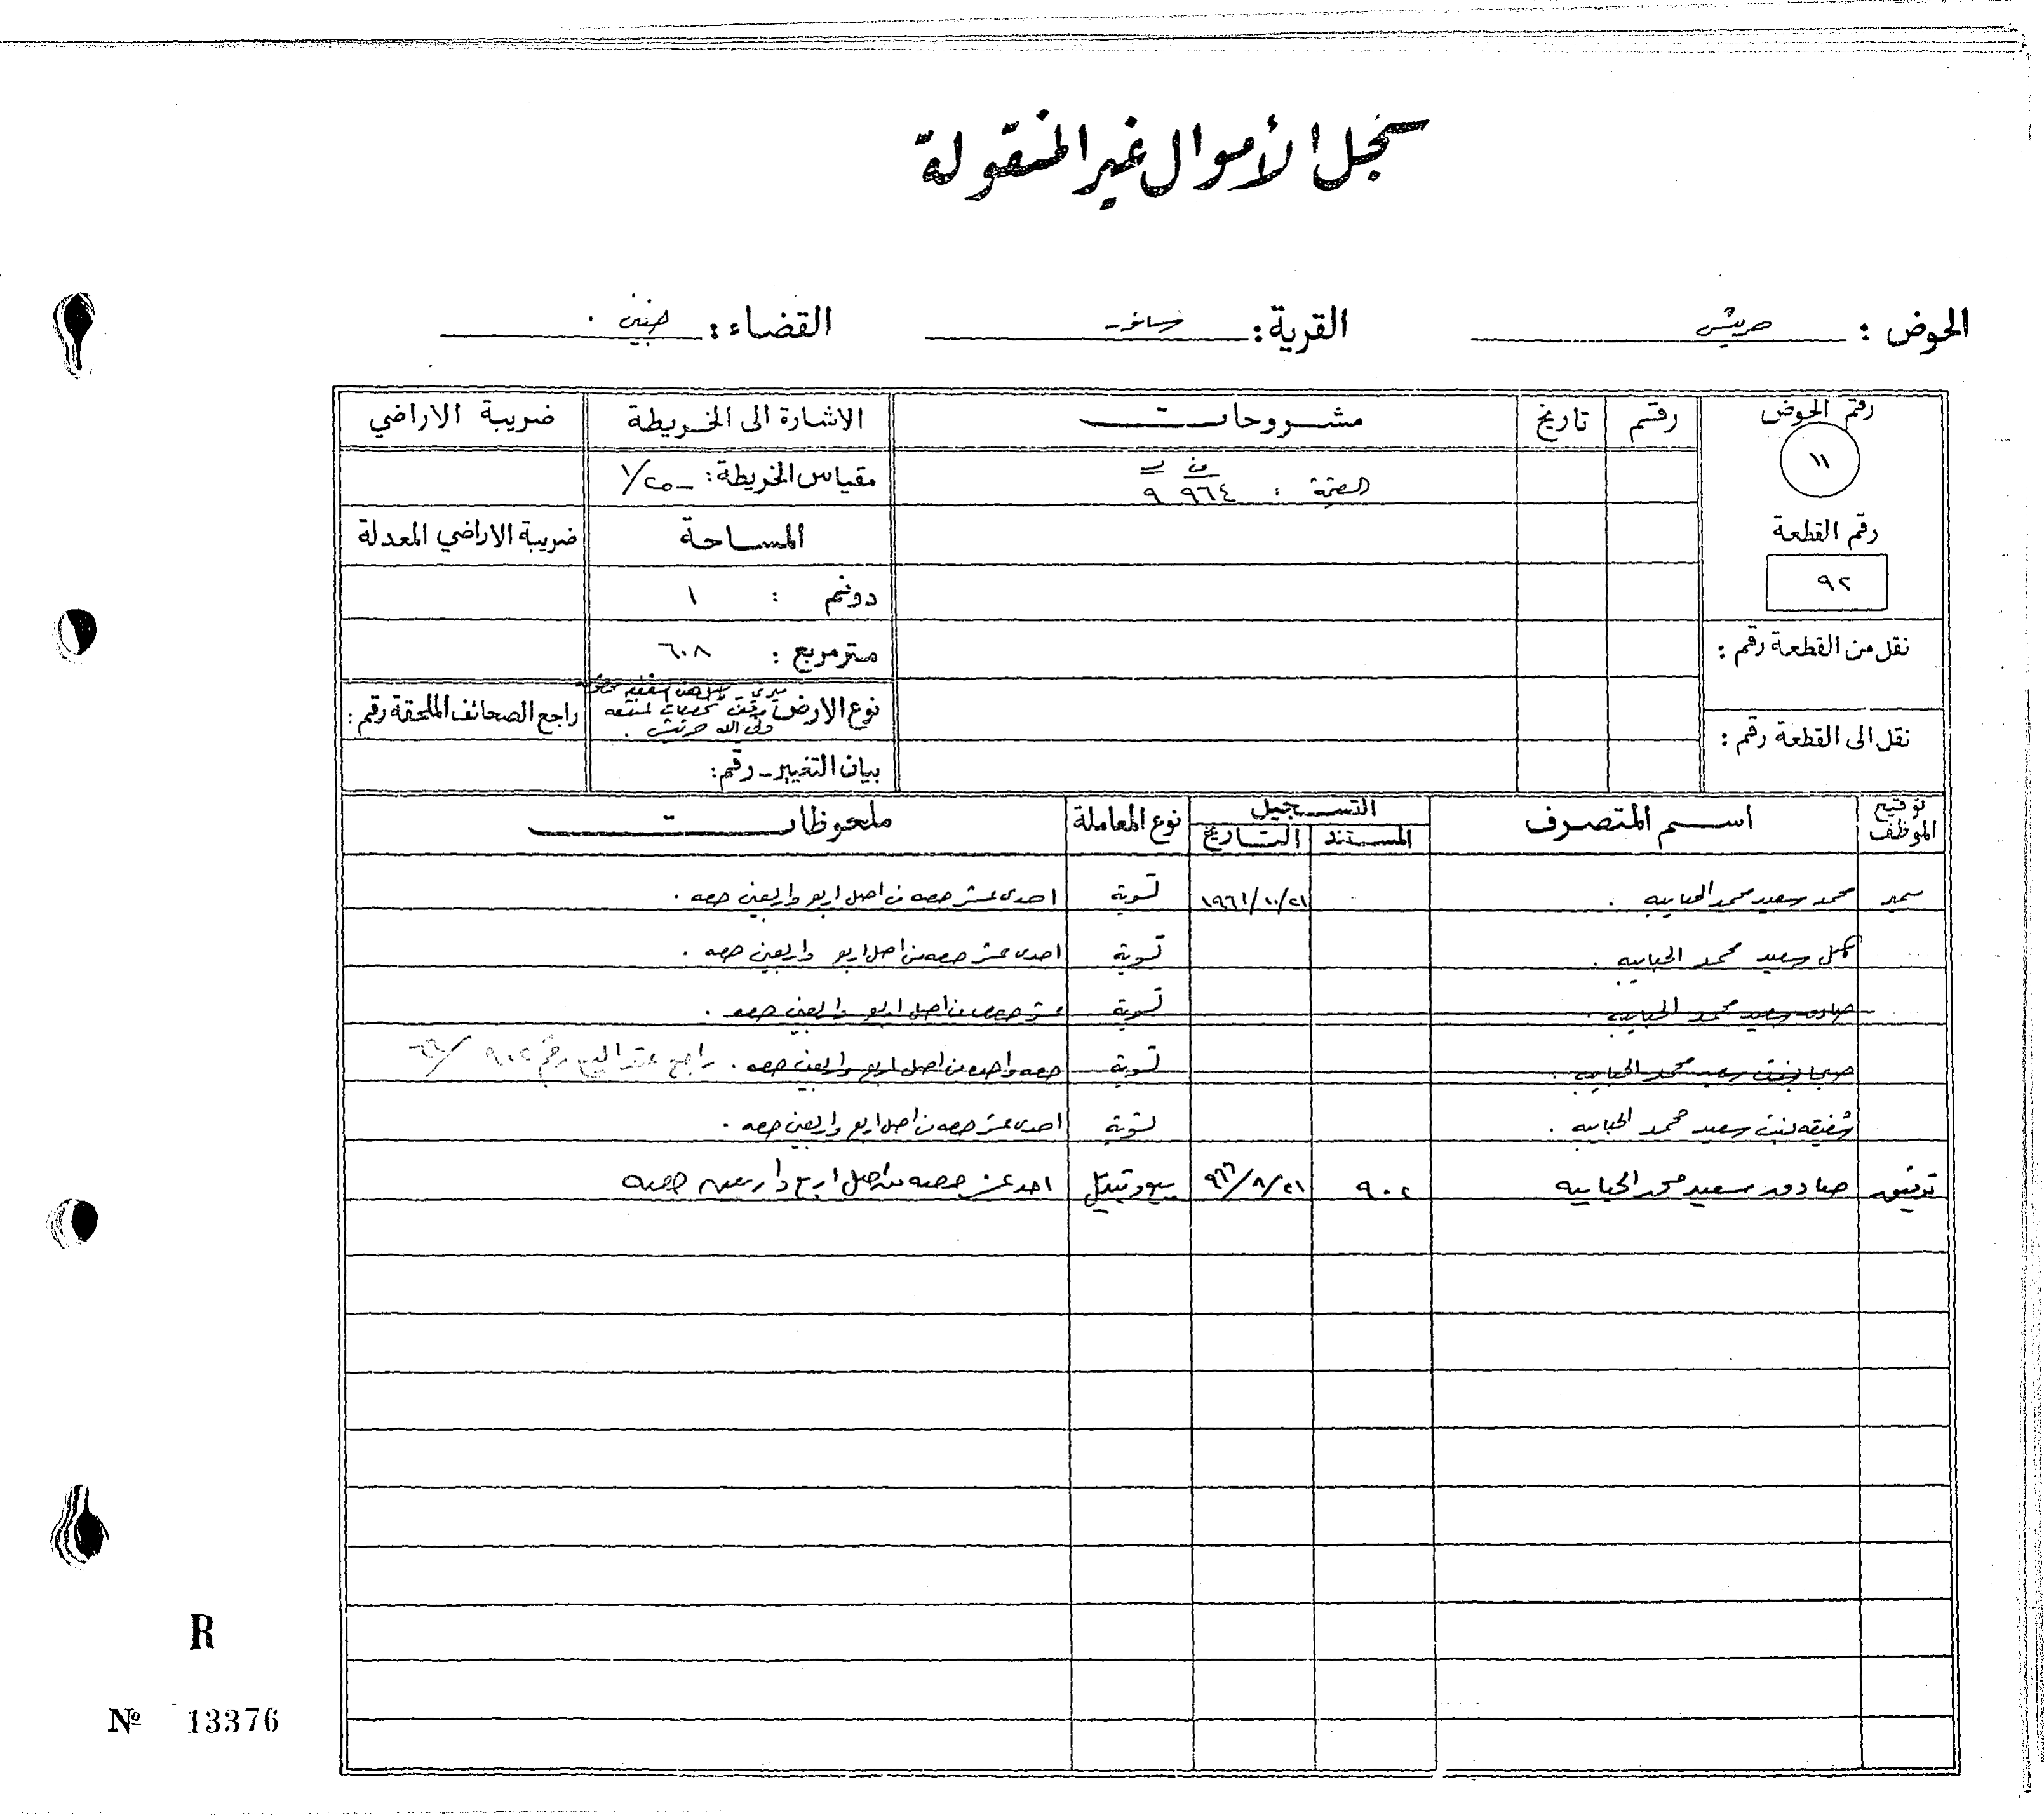 سجل الأموال غير المنقولة
الحوض : حريش القرية : صانور القضاء : جنين .
رقم الحوض رقم تاريخ مشروحات الاشارة الى الخريطة ضريبة الاراضي
١١ القيمة : ٩٦٤ ٩ مقياس الخريطة : ١/٢٥٠٠
رقم القطعة المساحة ضريبة الاراضي المعدلة
٩٢ دونم : ١
نقل من القطعة رقم : متر مربع : ٦٠٨
نوع الارض ميري وقف تخصيصات لمنفعة ولي الله حريش . راجع الصحائف الملحقة رقم :
نقل الى القطعة رقم :
بيان التغيير - رقم :
توقيع الموظف اسم المتصرف التسجيل نوع المعاملة ملحوظات
المستند التاريخ
سمير محمد سعيد محمد الحبايبه . ١٩٦١/١٠/٢١ تسوية احدى عشر حصه من اصل اربع واربعين حصه .
كامل سعيد محمد الحبايبه . تسوية احدى عشر حصه من اصل اربع واربعين حصه .
صادق سعيد محمد الحبايبه . تسوية عشر حصص من اصل اربع واربعين حصه .
بنت سعيد محمد الحبايبه . تسوية حصه واحده من اصل اربع واربعين حصه . راجع عقد البيع رقم ٩٠٢/٦٦
شفيقه بنت سعيد محمد الحبايبه . تسوية احدى عشر حصه من اصل اربع واربعين حصه .
توفيق صادق سعيد محمد الحبايبه ٩٠٢ ٩٦٦/٨/٢١ بيع وتبديل احد عشر حصه من اصل اربع واربعين حصه
R
Nº 13376